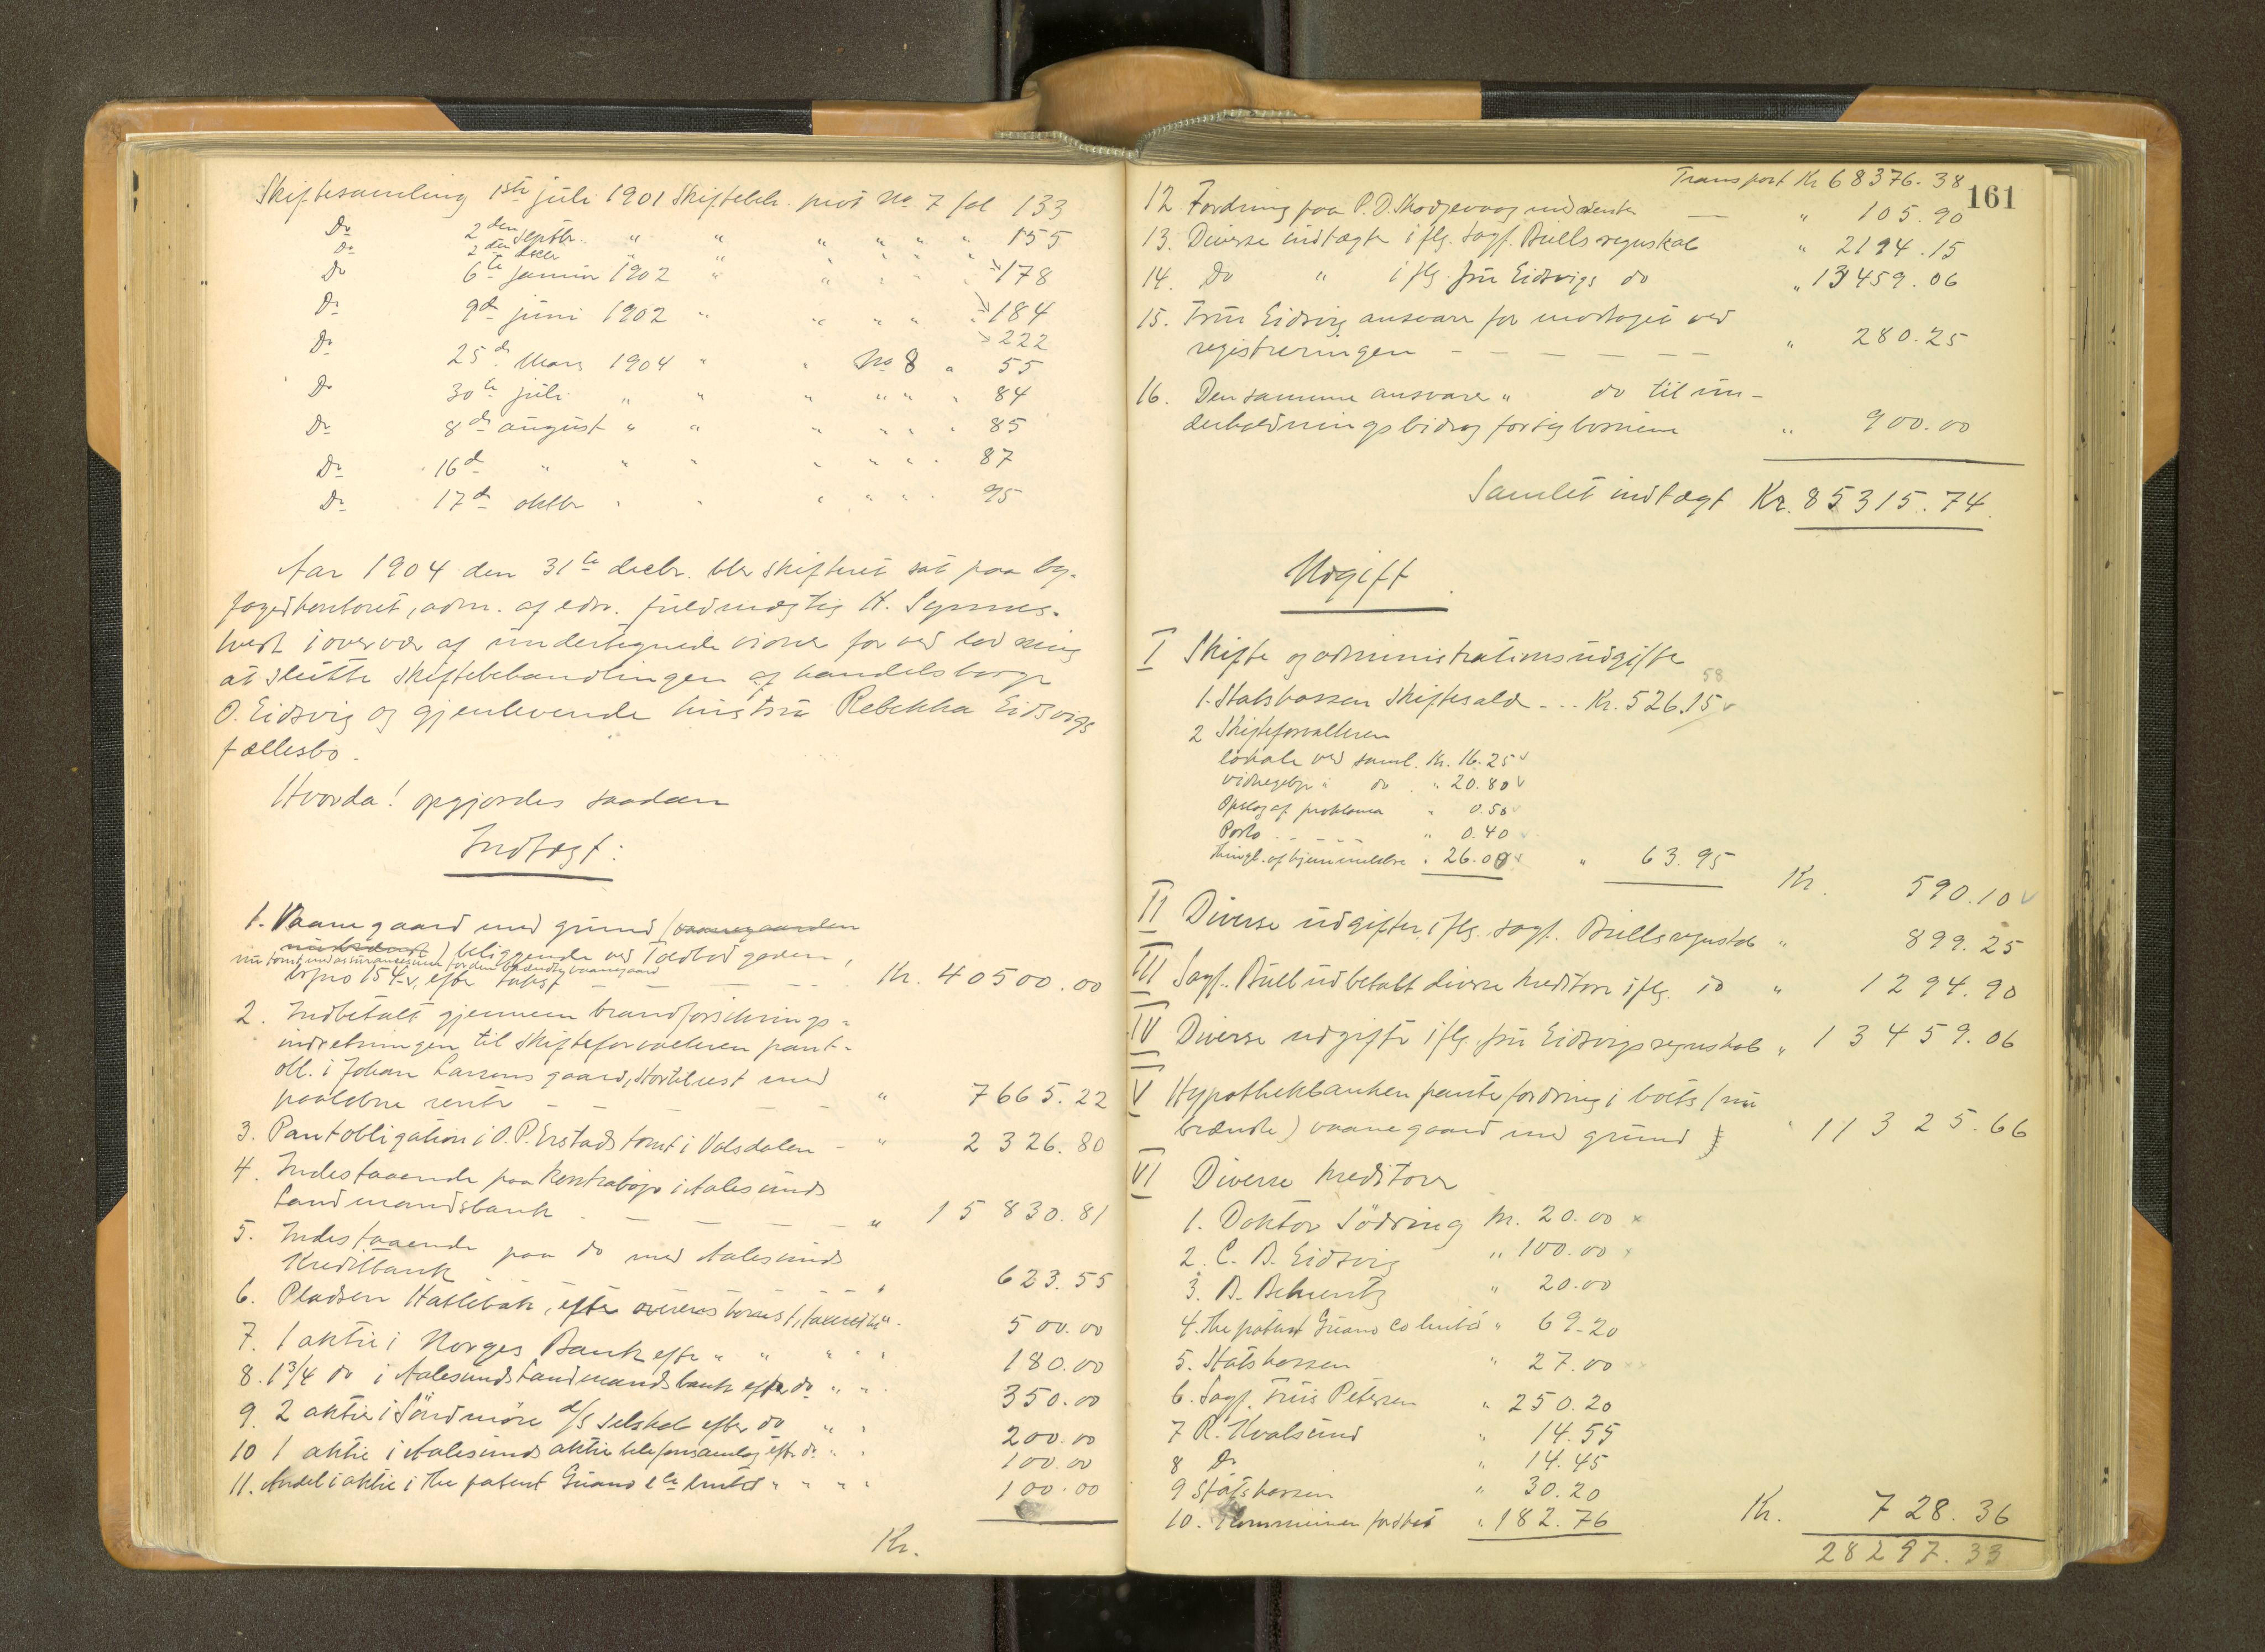 Skiftesamling 1ste juli 1901 Skiftebeh. prot No. 7 fol 133
Do 2den septbr. " " " " " " 155
Do 2den decbr " " " " " "
Do 6te januar 1902 " " " " 178
Do 9de juni 1902 " " " " 184
222
Do 25de Mars 1904 " " No 8 " 55
Do 30te juli " " " " " " 84
Do 8de august " " " " " " 85
Do 16de " " " " " " " 87
Do 17de oktbr " " " " " " 95
Aar 1904 den 31te decbr. blev skifteret sat paa by-
fogedkontoret, adm. af edsv. fuldmægtig H. Synnes-
tvedt i overvær af undertegnede vidner for ved lodning
at slutte skiftebehandlingen af handelsborger
O. Eidsvig og gjenlevende hustru Rebekka Eidsvigs
fællesbo.
Hvorda! opgjordes saadan
Indtægt:
1. Vaanegaard med grund (vaanegaarden
nedbrændt) beliggende ved Toldbodgaden,
nu tomt med assurancesum for den brændte vaanegaard
bypno 154 v, efter takst — — — Kr. 40500.00
2. Indbetalt gjennem brandforsikrings-
indretningen til skifteforvalteren pant-
obl. i Johan Larsens gaard, Stortilrest med
paaløbne renter — — — " 7665.22
3. Pantobligation i O. P. Erstads tomt i Volsdalen — " 2326.80
4. Indestaaende paa kontrabog i Aalesunds
Landmandsbank — — — — " 15830.81
5. Indestaaende paa do med Aalesunds
Kreditbank — — — " 623.55
6. Pladsen Hatlebak, efter overenskomst, taxeret til " 500.00
7. 1 aktie i Norges Bank efter " " " " 180.00
8. 1 3/4 do i Aalesunds Landmandsbank efter do " " 350.00
9. 2 aktier i Söndmöre d/s selskab efter do " " 200.00
10 1 aktie i Aalesunds aktie telefonsamlag eft. do " " 100.00
11. Andel i aktie i the patent Guano Co limited " " " " 100.00
Kr.
161
Transport Kr 68376.38
12 Fordring paa P. O. Skodjevaag med renter — " 105.90
13. Diverse indtægter iflg. sagf. Bulls regnskab " 2194.15
14. Do " iflg. fru Eidsvigs do " 13459.06
15. Fru Eidsvig ansvarer for modtaget ved
registreringen — — — — — — " 280.25
16. Den samme ansvarer " do til un-
derholdningsbidrag for sig börnene " 900.00
Samlet indtægt Kr. 85315.74
Udgift
I Skifte og administrationsudgifter
58
1. Statskassen skiftesald - - - Kr. 526.15
2 Skifteforvalteren
lokale ved saml. Kr. 16.25
vidnegebyr i do " 20.80
Opslag af proklama " 0.50
Porto - - - - " 0.40
thingl. af hjemmelsbre " 26.00 " 63.95
Kr. 590.10
II Diverse udgifter iflg. sagf. Bulls regnskab " 899.25
III Sagf. Bull udbetalt diverse kreditorer iflg. do " 1294.90
IV Diverse udgifter iflg. fru Eidsvigs regnskab " 13459.06
V Hypothekbanken pantefordring i boets (nu
brændte) vaanegaard med grund " 11325.66
VI Diverse kreditorer
1. Doktor Södring Kr. 20.00
2. C. B. Eidsvig " 100.00
3. B. Behrentz " 20.00
4. The patent Guano Co limtd " 69.20
5. Statskassen " 27.00
6. Sagf. Friis Petersen " 250.20
7 R. Kvalsund " 14.55
8 Do " 14.45
9 Statskassen " 30.20
10. Kommunen forskud " 182.76 Kr. 728.36
28297.33